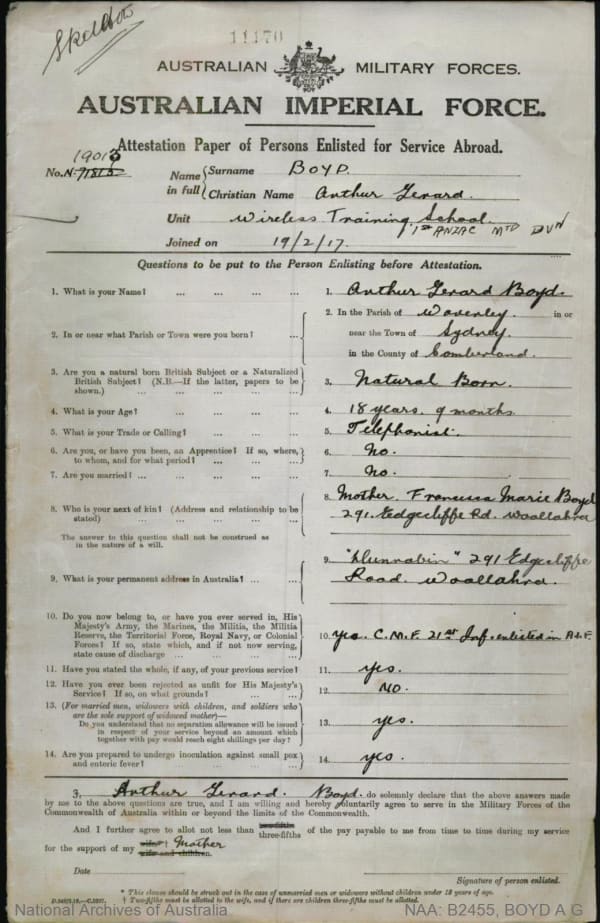 Skeldon
11170
AUSTRALIAN MILITARY FORCES.
AUSTRALIAN IMPERIAL FORCE.
Attestation Paper of Persons Enlisted for Service Abroad.
No. 19013
Name in full { Surname BOYD.
Christian Name Arthur Gerard.
Unit Wireless Training School.
1st ANZAC MTD DVN
Joined on 19/2/17.
Questions to be put to the Person Enlisting before Attestation.
1. What is your Name? ... ... ... ... 1. Arthur Gerard Boyd.
2. In or near what Parish or Town were you born? ... 2. In the Parish of Waverley. in or
near the Town of Sydney.
in the County of Comberland.
3. Are you a natural born British Subject or a Naturalized
British Subject? (N.B.—If the latter, papers to be
shown.) ... ... ... ... 3. Natural Born.
4. What is your Age? ... ... ... ... 4. 18 years. 9 months
5. What is your Trade or Calling? ... ... ... 5. Telephonist.
6. Are you, or have you been, an Apprentice? If so, where,
to whom, and for what period? ... ... ... 6. No.
7. Are you married? ... ... ... ... 7. No.
8. Who is your next of kin? (Address and relationship to be
stated) ... ... ... ... 8. Mother. Marie Boyd
291. Edgecliffe Rd. Woollahra
The answer to this question shall not be construed as
in the nature of a will.
9. What is your permanent address in Australia? ... ... 9. "Dunrobin" 291 Edgecliffe
Road. Woollahra.
10. Do you now belong to, or have you ever served in, His
Majesty's Army, the Marines, the Militia, the Militia
Reserve, the Territorial Force, Royal Navy, or Colonial
Forces? If so, state which, and if not now serving,
state cause of discharge ... ... ... 10. yes. C.M.F. 21st Inf. enlisted in A.I.F.
11. Have you stated the whole, if any, of your previous service? 11. yes.
12. Have you ever been rejected as unfit for His Majesty's
Service? If so, on what grounds? ... ... 12. NO.
13. (For married men, widowers with children, and soldiers who
are the sole support of widowed mother)—
Do you understand that no separation allowance will be issued
in respect of your service beyond an amount which
together with pay would reach eight shillings per day? 13. yes.
14. Are you prepared to undergo inoculation against small pox
and enteric fever? ... ... ... ... 14. yes.
I, Arthur Gerard. Boyd. do solemnly declare that the above answers made
by me to the above questions are true, and I am willing and hereby voluntarily agree to serve in the Military Forces of the
Commonwealth of Australia within or beyond the limits of the Commonwealth.
And I further agree to allot not less than two-fifths three-fifths of the pay payable to me from time to time during my service
for the support of my wife † Mother
wife and children.
Date
Signature of person enlisted.
* This clause should be struck out in the case of unmarried men or widowers without children under 18 years of age.
† Two-fifths must be allotted to the wife, and if there are children three-fifths must be allotted.
National Archives of Australia
NAA: B2455, BOYD A G